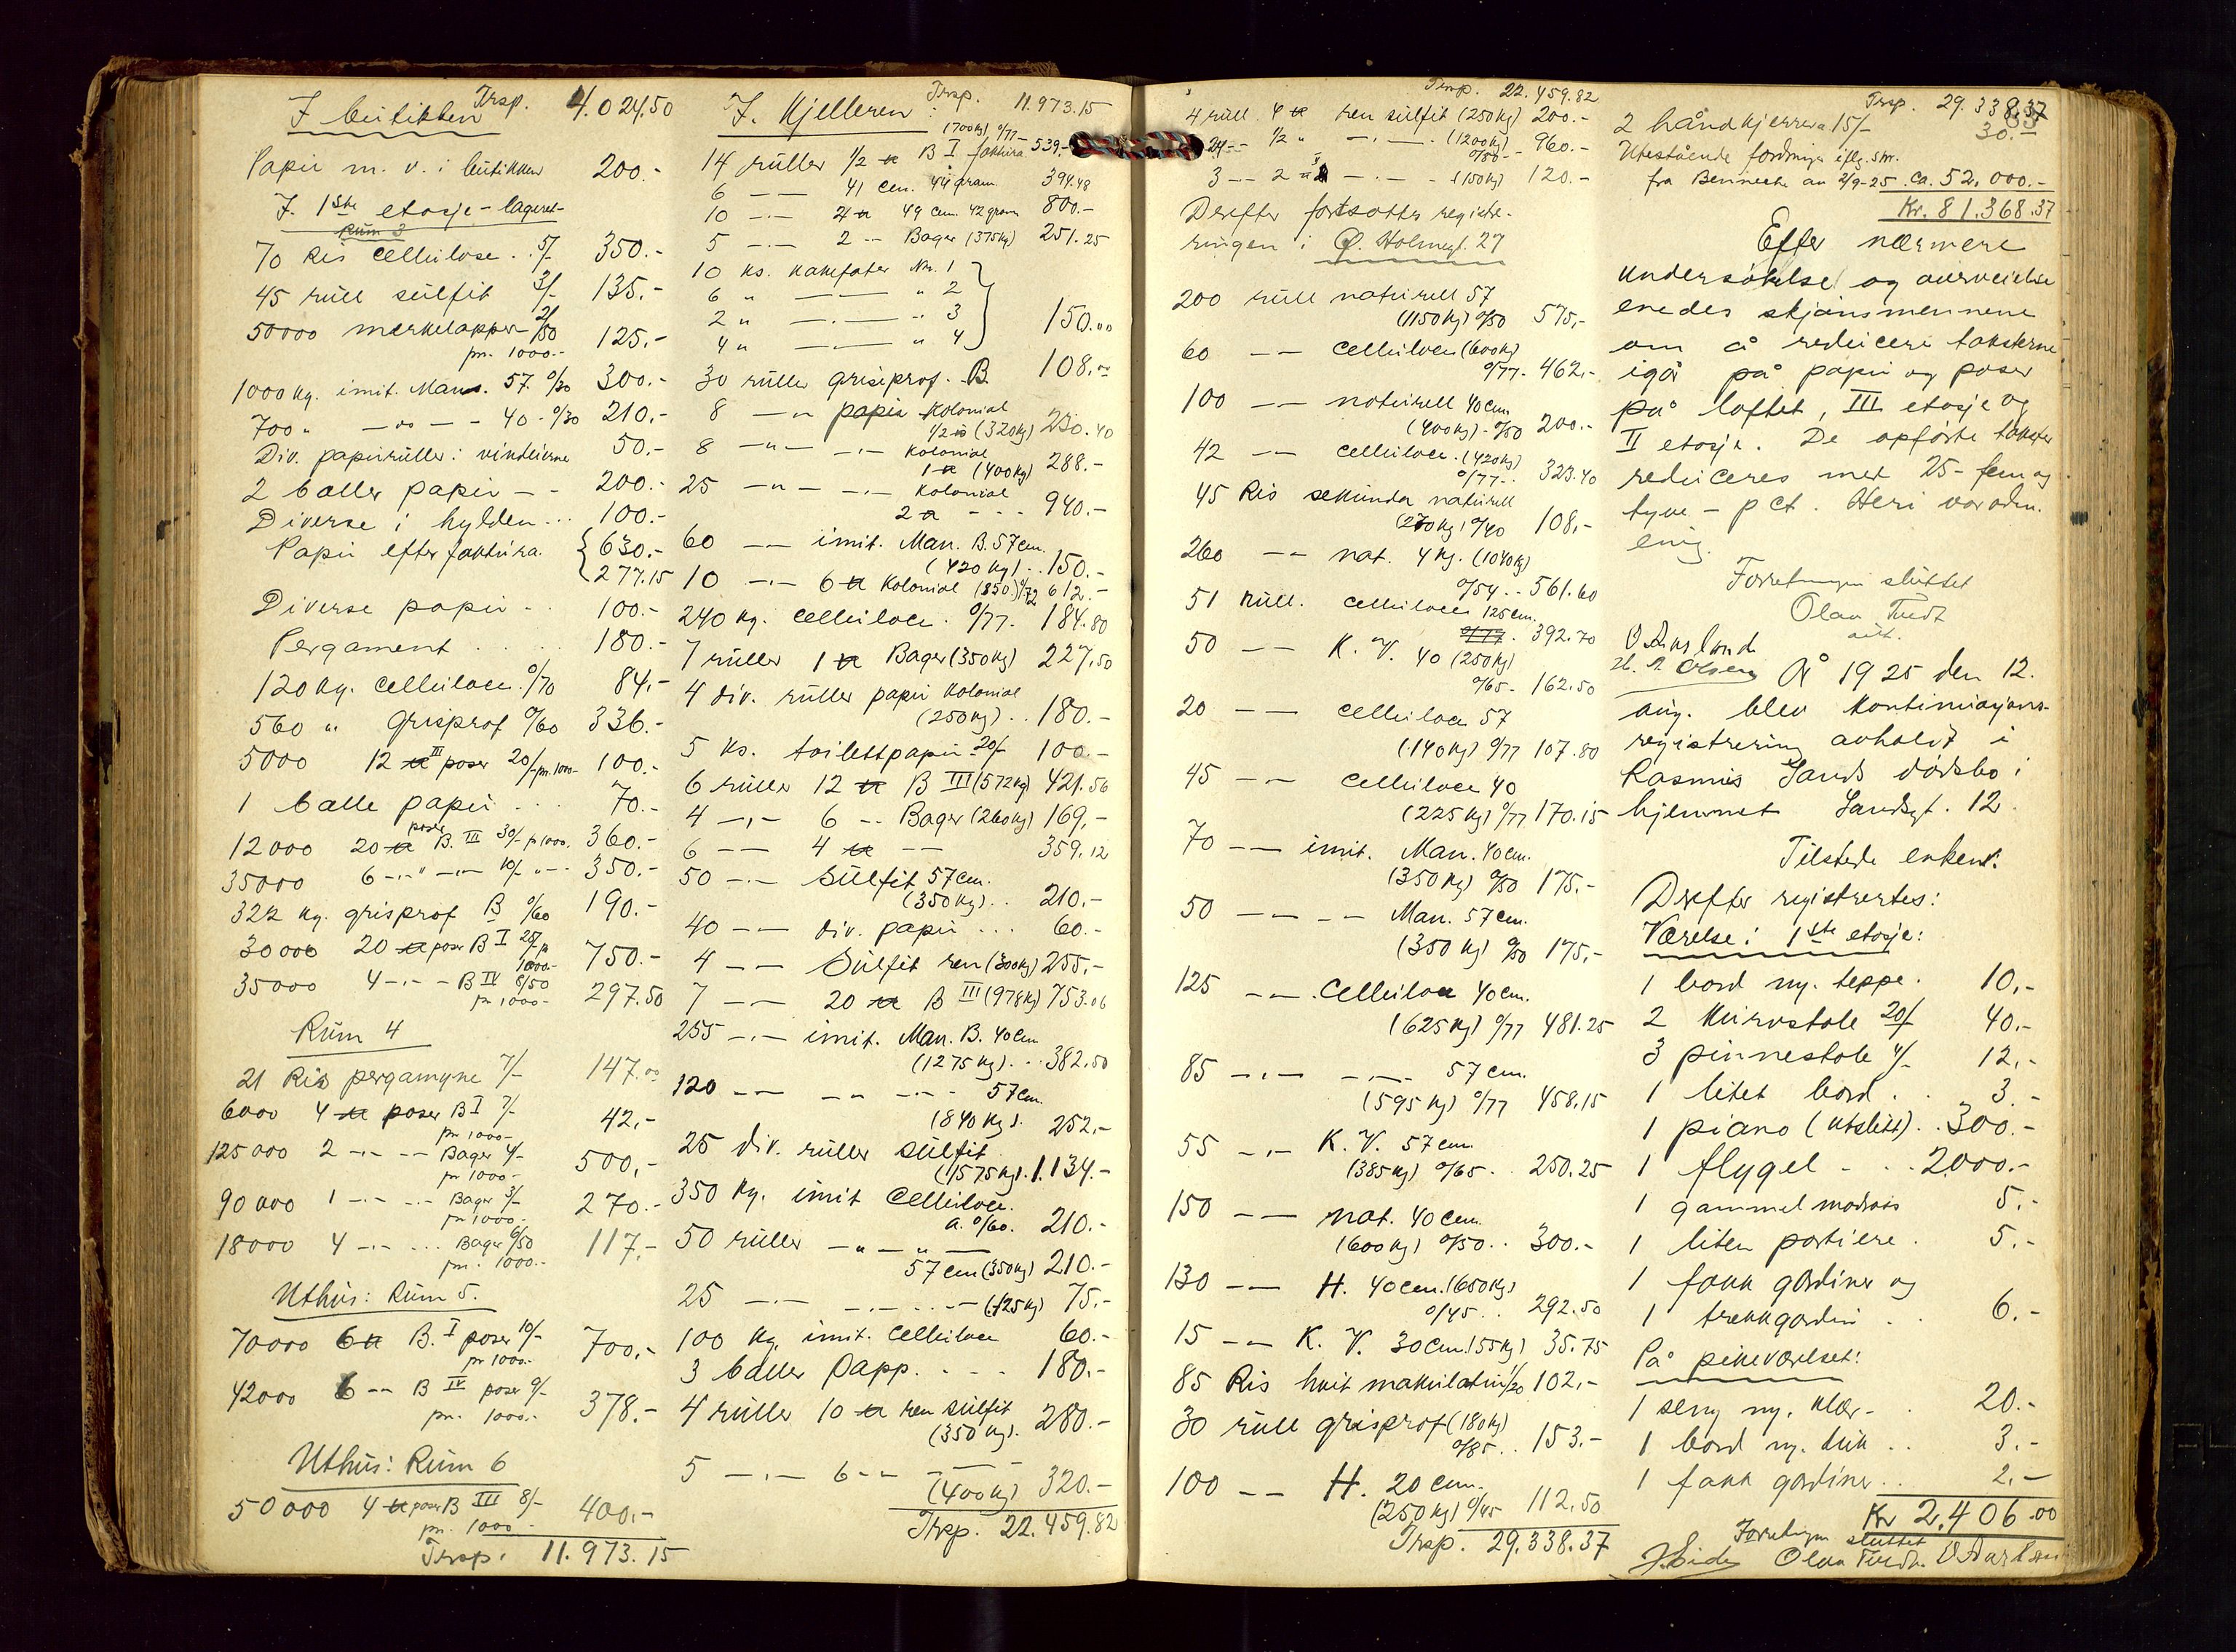 I butikken Trsp. 4.024.50
Papir m. v. i butikken 200.-
I. 1ste etasje - lageret -
Rum 3
70 Ris Cellulose . 5/- 350.-
45 rull sulfit 3/- 135.-
50000 merkelapper 2/50 125.-
pr. 1000.-
1000 kg. imit. Mans. 57. 0/30 300.-
700 " — " — - 40 - 0/30 210.-
Div. papirruller i vinduerne 50.-
2 baller papir - - 200.-
Diverse i hylden ... 100.-
Papir efter faktura. { 630.-
277.15
Diverse papir - . 100.-
Pergament . . . . 180.-
120 kg. Celluloce . 0/70 84.-
560 " Grisprof 0/60 336.-
5000 12 u III poser 20/- pr. 1000.- 100.-
1 balle papir . . . 70.-
12000 20 u poser B. III 30/- p 1000. 360.-
35000 6 -..- " -..- 10/- ..-.. 350.-
322 kg. grisprof B 0/60 190.-
30000 20 u poser B I 25/- pr 1000.- 750.-
35000 4 -..- - B IV 8/50 297.50
pr 1000.-
Rum 4
21 Ris pergamyne 7/- 147.00
6000 4 u poser B I 7/- 42.-
pr 1000.-
125000 2 -..- -- Bager 4/- 500.-
pr 1000.-
90000 1 -..- -..- Bager 3/- 270.-
pr 1000.-
18000 4 -..- ... Bager 6/50 117.-
pr. 1000.-
Uthus: Rum 5.
70000 6 u B. I poser 10/- 700.-
pr 1000.-
42000 6 -- B IV poser 9/- 378.-
pr. 1000.-
Uthus: Rum 6
50000 4 u poser B III 8/- 400.-
pr. 1000 -
Trsp. 11.973.15
I. Kjelleren : Trsp. 11.973.15
14 ruller 1/2 u B I (700 kg) 0/77 faktura 539.-
6 — — 41 cm. 44 gram. 394.48
10 -..- 4 u 49 cm. 42 gram 800.-
5 -..- 2 -- Bager (375 kg) 251.25
10 ks. kakefater Nr. 1
6 " —..— " 2
2 " —..— " 3 150.00
4 " —..— " 4
30 ruller grisprof. B 108.00
8 — " papir Kolonial
1/2 u (320 kg) 230.40
8 — " — -..- Kolonial
1 u (400 kg) 288.-
25 — " — -..- Kolonial
2 u - - - 940.-
60 — — imit. Man. B. 57 cm.
(420 kg) .. 150.-
10 -..- 6 u Kolonial (850.) 0/72 612.-
240 kg. Celluloce . 0/77. 184.80
7 ruller 1 u Bager (350 kg) 227.50
4 div. ruller papir Kolonial
(250 kg) .. 180.-
5 ks. toilettpapir 20/- 100.-
6 ruller 12 u B III (572 kg) 421.56
4 -..- 6 -- Bager (260 kg) 169.-
6 — — 4 u — — 359.12
50 -..- Sulfit 57 cm.
(350 kg) .. 210.-
40 — — div. papir ... 60.-
4 — — Sulfit ren (300 kg) 255.-
7 — — 20 u B III (978 kg) 753.06
255 -..- imit. Man. B. 40 cm
(1275 kg) ... 382.50
120 — — — " -..- 57 cm.
(840 kg). 252.-
25 div. ruller sulfit
(1575 kg) . 1.134.-
350 kg. imit Celluloce.
a. 0/60. 210.-
50 ruller — " — " —
57 cm (350 kg) 210.-
25 -..- -..- . .- (125 kg) 75.-
100 kg. imit. Celluloce 60.-
3 baller Papp. . - . 180.-
4 ruller 10 u ren sulfit
(350 kg). 280.-
5 -..- 6 -- -..-
(400 kg) 320.-
Trsp. 22.459.82
Trsp. 22.459.82
4 rull 4 u ren sulfit (250 kg) 200.-
24 -- 1/2 " -..-. (1200 kg)
0/80 - 960.-
3 -- 2 u -..- - (150 kg) 120.-
Derefter fortsattes registre-
ringen i Ø. Holmegt. 27
200 rull naturell 57
(1150 kg) 0/50 575.-
60 — — Celluloce (600 kg)
0/77. 462.-
100 — — naturell 40 cm.
(400 kg) - 0/50 200.-
42 — — Celluloce. (420 kg)
0/77.. 323.40
45 Ris sekunda naturell
(270 kg) 0/40 108.-
260 — — nat. 4 kg. (1040 kg)
0/54 .. 561.60
51 Rull. Celluloce 125 cm.
0/77. 392.70
50 — — K. V. 40 (250 kg)
0/65- 162.50
20 — — Celluloce 57
(140 kg) 0/77 107.80
45 — — Celluloce 40
(225 kg) 0/77 170.15
70 — — imit. Man. 40 cm.
(350 kg) 0/50 175.-
50 — — — Man. 57 cm.
(350 kg) 0/50 175.-
125 — — Celluloce 40 cm.
(625 kg) 0/77 481.25
85 -..- -..- 57 cm.
(595 kg) 0/77 458.15
55 -..- K. V. 57 cm
(385 kg) 0/65.. 250.25
150 — — nat. 40 cm.
(600 kg) 0/50.. 300.-
130 — — H. 40 cm. (650 kg)
0/45.. 292.50
15 — — K. V. 30 cm (55 kg) 35.75
85 Ris hvit makulatur 1/20 102.-
30 rull grisprof (180 kg)
0/85.. 153.-
100 — — H. 20 cm.
(250 kg) 0/45 112.50
Trsp. 29.338.37
83
Trsp. 29.338.37
2 håndkjerrer a 15/- 30.-
Utestående fordringer iflg. skr.
fra Bennecke av 2/9-25. ca. 52.000.-
Kr. 81.368.37
Efter nærmere
undersøkelse og overveielse
enedes skjønsmennene
om å reducere taksterne
igår på papir og poser
på loftet, III etasje og
II etasje. De opførte takster
reduceres med 25 - fem og
tyve - pct. Heri var adm.
enig.
Forretningen sluttet
Olav Tvedt
aut.
O Aarland
H. A. Olsen
År 1925 den 12.
aug. blev kontinuasjons-
registrering avholdt i
Rasmus Sands dødsbo i
hjemmet Sandsgt. 12
Tilstede enken.
Derefter registrertes:
Værelse i 1ste etasje:
1 bord m. teppe . 10.-
2 kurvstole 20/- 40.-
3 pinnestole 4/- 12.-
1 litet bord . . 3.-
1 piano (utslitt) .. 300.-
1 flygel - . . 2000.-
1 gammel madrass 5.-
1 liten portiere . 5.-
1 fakk gardiner og
1 trekkgardin . . 6.-
På pikeværelset:
1 seng m. klær - . 20.-
1 bord m. duk .. 3.-
1 fakk gardiner . . 2.-
Kr 2.406.00
Forretningen sluttet
Olav Tvedt. O Aarland